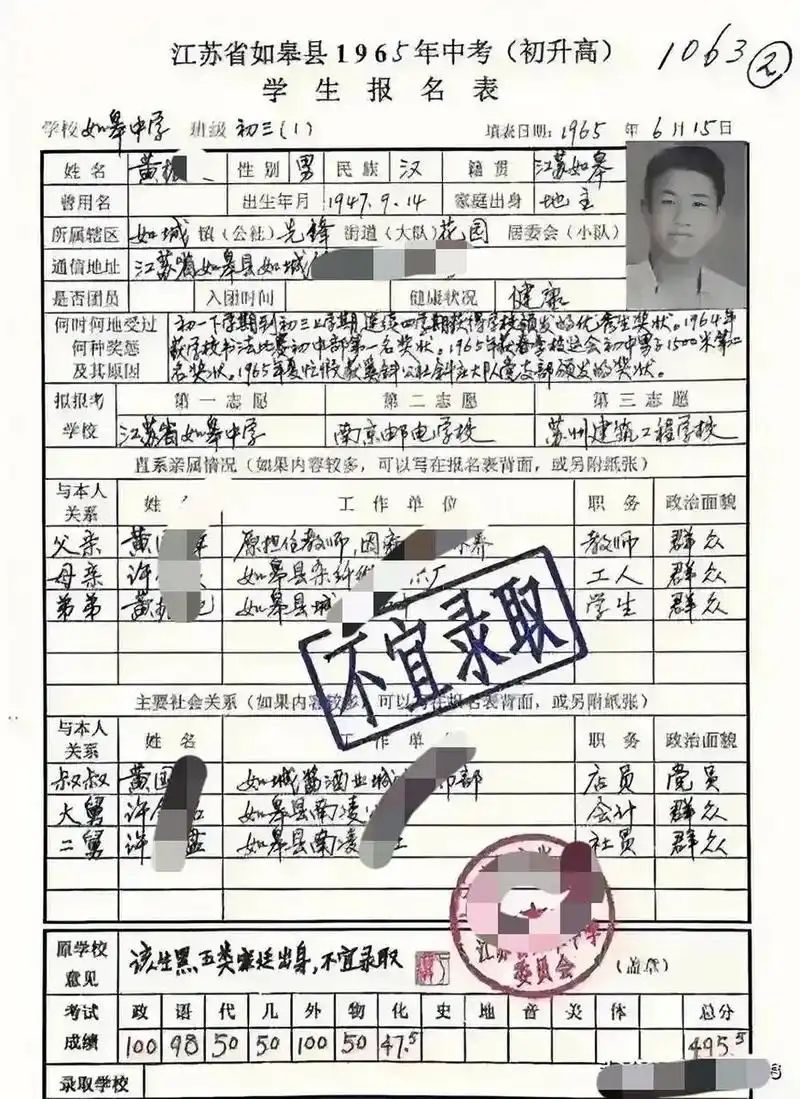 江苏省如皋县1965年中考（初升高） 1063 ②
学生报名表
学校 如皋中学 班级 初三(1) 填表日期：1965 年 6月15日
姓名 黄振 性别 男 民族 汉 籍贯 江苏如皋
曾用名 出生年月 1947.9.14 家庭出身 地主
所属辖区 如城 镇（公社）先锋 街道（大队）花园 居委会（小队）
通信地址 江苏省如皋县如城
是否团员 入团时间 健康状况 健康
何时何地受过 初一下学期到初三上学期连续四学期获得学校颁发的优秀生奖状。1964年
何种奖惩 获学校书法比赛初中部第一名奖状。1965年获春季校运会初中男子1500米第二
及其原因 名奖状。1965年夏忙假获奚斜公社斜庄大队党支部颁发的奖状。
拟报考 第一志愿 第二志愿 第三志愿
学校 江苏省如皋中学 南京邮电学校 苏州建筑工程学校
直系亲属情况（如果内容较多，可以写在报名表背面，或另附纸张）
与本人关系 姓 工作单位 职务 政治面貌
父亲 黄 原担任教师，因 养 教师 群众
母亲 许 如皋县 厂 工人 群众
弟弟 黄 如皋县城 学生 群众
不宜录取
主要社会关系（如果内容较多，可以写在报名表背面，或另附纸张）
与本人关系 姓名 工作单 职务 政治面貌
叔叔 黄国 如城酱酒业城 部 店员 党员
大舅 许 如皋县南凌 会计 群众
二舅 许 如皋县南凌 社 社员 群众
原学校意见 该生黑五类家庭出身，不宜录取 （盖章）
江苏 中学
委员会
考试 政 语 代 几 外 物 化 史 地 音 美 体 总分
成绩 100 98 50 50 100 50 47.5 495.5
录取学校